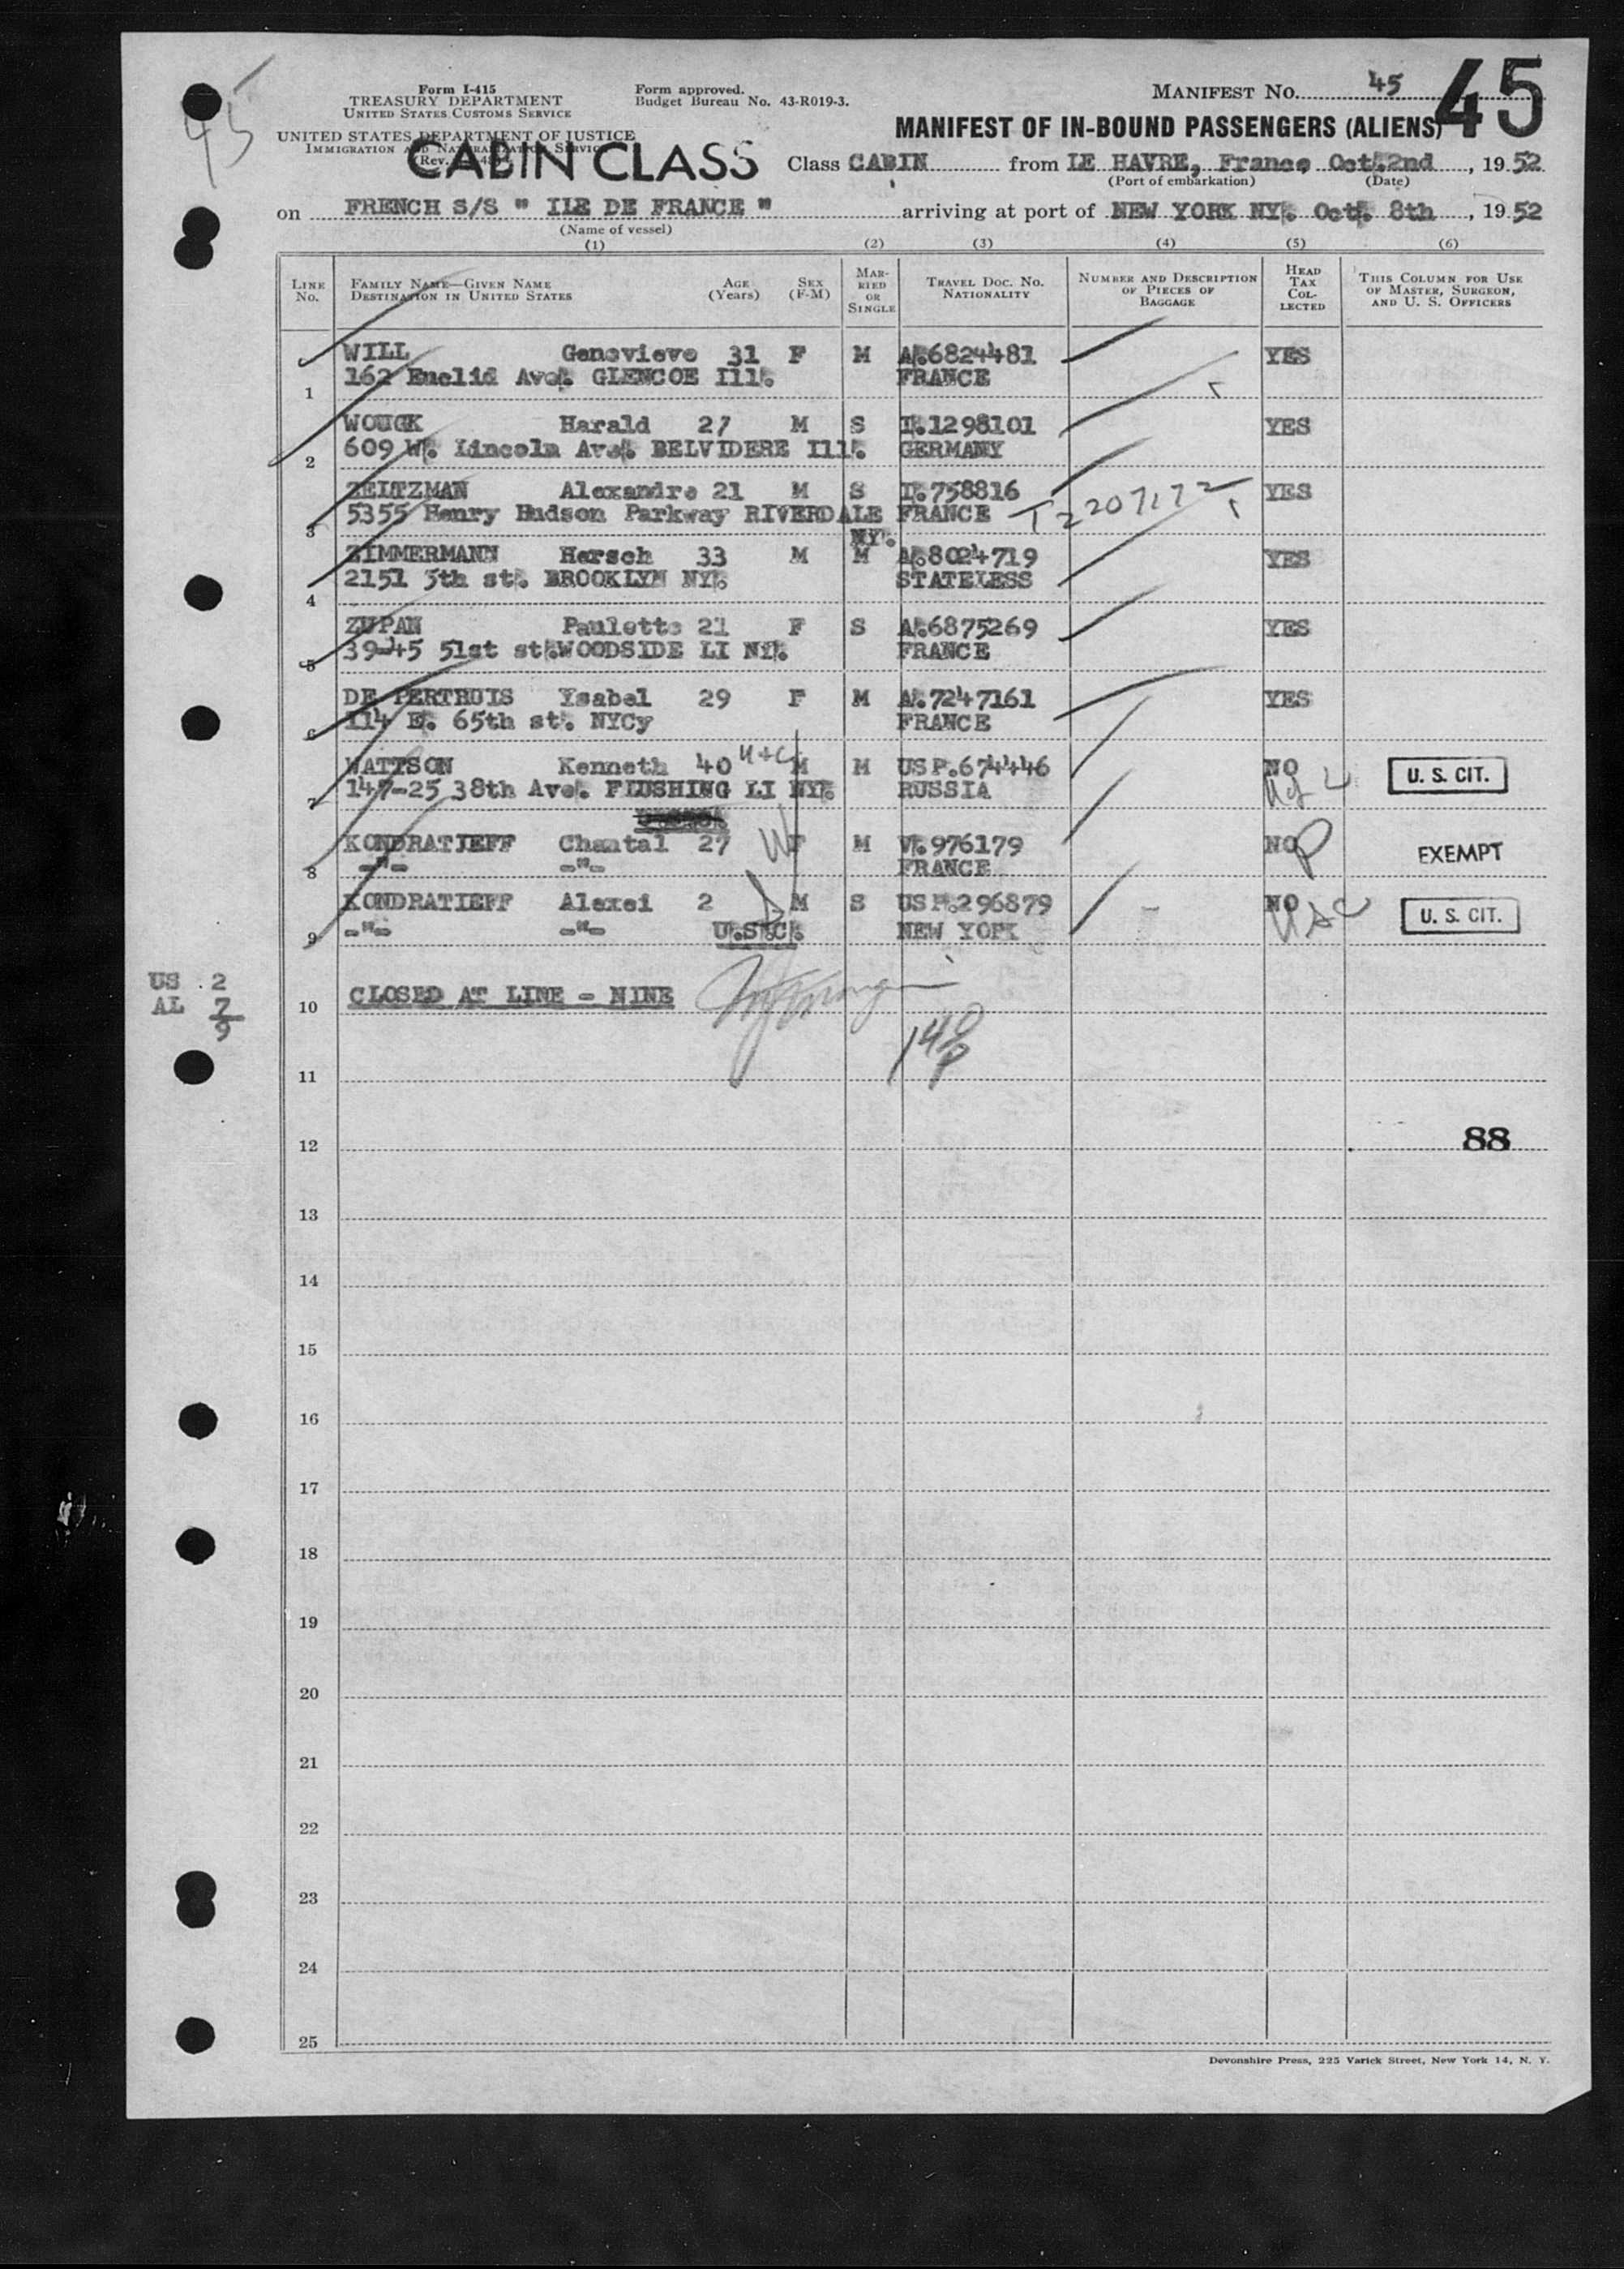 45
Form I-415
TREASURY DEPARTMENT
UNITED STATES CUSTOMS SERVICE
UNITED STATES DEPARTMENT OF JUSTICE
IMMIGRATION AND NATURALIZATION SERVICE
(Rev.
CABIN CLASS
Form approved.
Budget Bureau No. 43-R019-3.
MANIFEST NO. 45
45
MANIFEST OF IN-BOUND PASSENGERS (ALIENS)
Class CABIN from LE HAVRE, France Oct. 2nd, 1952
(Port of embarkation) (Date)
on FRENCH S/S " ILE DE FRANCE " arriving at port of NEW YORK NY. Oct. 8th, 1952
(Name of vessel)
(1) (2) (3) (4) (5) (6)
LINE No. FAMILY NAME—GIVEN NAME DESTINATION IN UNITED STATES AGE (Years) SEX (F-M) MARRIED OR SINGLE TRAVEL DOC. NO. NATIONALITY NUMBER AND DESCRIPTION OF PIECES OF BAGGAGE HEAD TAX COLLECTED THIS COLUMN FOR USE OF MASTER, SURGEON, AND U. S. OFFICERS
WILL Genevieve 31 F M A.6824481 YES
1 162 Euclid Ave. GLENCOE Ill. FRANCE
WOUGK Harald 27 M S I.1298101 YES
2 609 W. Lincoln Ave. BELVIDERE Ill. GERMANY
ZEITZMAN Alexandre 21 M S I.758816 YES
3 5355 Henry Hudson Parkway RIVERDALE NY. FRANCE T2207172
ZIMMERMANN Hersch 33 M M A.8024719 YES
4 2151 5th st. BROOKLYN NY. STATELESS
ZUPAN Paulette 21 F S A.6875269 YES
5 39-45 51st st. WOODSIDE LI NY. FRANCE
DE PERTHUIS Ysabel 29 F M A.7247161 YES
6 114 E. 65th st. NYCy FRANCE
WATTSON Kenneth 40 M M USP.674446 NO U. S. CIT.
7 147-25 38th Ave. FLUSHING LI NY. RUSSIA
KONDRATIEFF Chantal 27 W F M V.976179 NO P EXEMPT
8 -"- -"- FRANCE
KONDRATIEFF Alexei 2 M S USP.296879 NO USC U. S. CIT.
9 -"- -"- U.S.C. NEW YORK
US 2
AL 7
9
10 CLOSED AT LINE - NINE
11
12 88
13
14
15
16
17
18
19
20
21
22
23
24
25
Devonshire Press, 225 Varick Street, New York 14, N. Y.